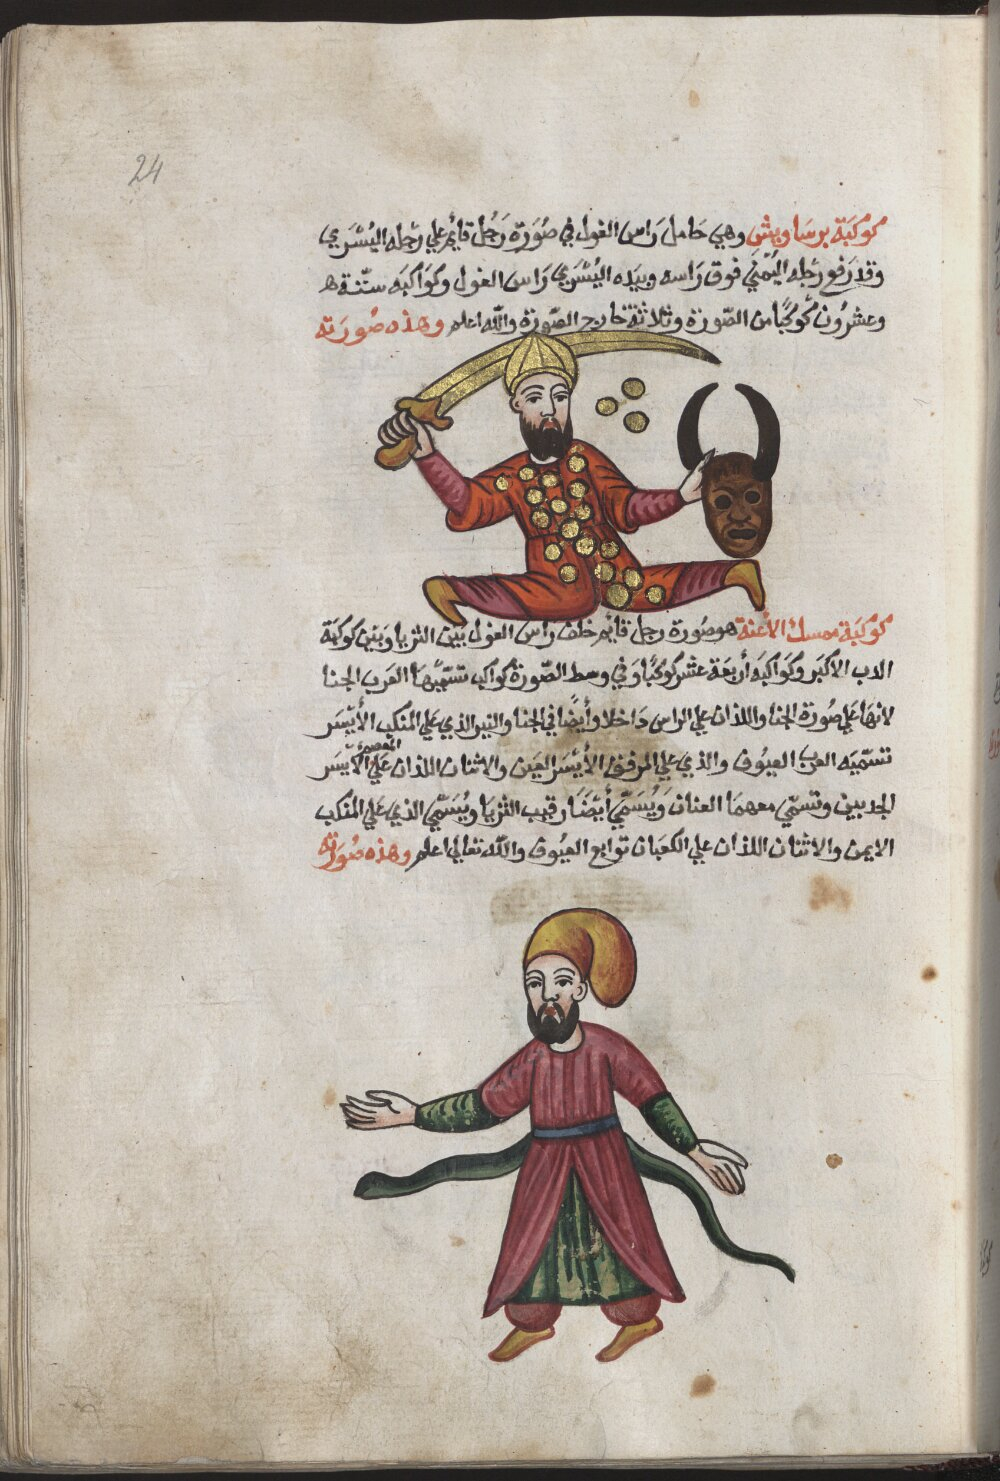 24
كوكبة برساوبش وهي حَامل رَاس الغول في صُورَة رَجُل قايم علي رجله اليُسْرَي
وقد رَفع رجله اليُمْنَي فوق رَاسه وبيَده اليُسْرَي رَاس الغول وكوَاكبَه ستّة
وعشرُون كوكبًا من الصّورَة وثلاثة خارج الصّورَة والله اعلم وهذه صُورَته
كوكبَة ممسك الأعنة هو صُورَة رجل قايم خلف رَاس الغول بَيْن الثريا وبَيْن كوكبَة
الدب الأكبَر وكوَاكبَه أربعَة عشر كوكبًا وَفي وسط الصّورَة كوَاكب تسَمّيهَا العَرَب الخبا
لانها علي صُورَة الخبا واللذان علي الراس دَاخلا وأيضًا في الخبا والنير الذي عَلي المنكب الأيْسَر
تسَمّيَه العرَب العيُوق والذي علي المرفق الأيْسَر العَنز والاثنان اللذان عَلي المعصم الأيْسَر
الجديين وتسَمّي معهمَا العنان وَيُسَمّي أيْضًا رَقيب الثريا ويُسَمّي الذي عَلي المنكب
الايمن والاثنان اللذان علي الكعبان توابع العيُوق والله تعالي اعلم وهذه صُورَته